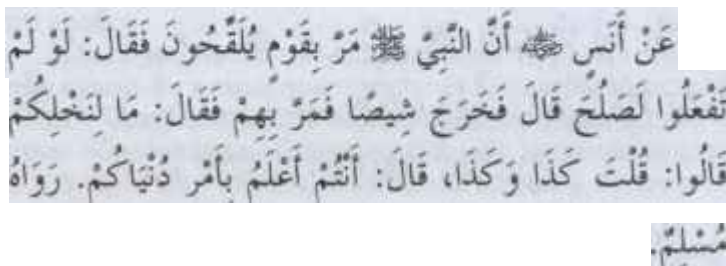 عَنْ أَنَسٍ ﷺ أَنَّ النَّبِيَّ ﷺ مَرَّ بِقَوْمٍ يُلَقِّحُونَ فَقَالَ: لَوْ لَمْ
تَفْعَلُوا لَصَلُحَ قَالَ فَخَرَجَ شِيصًا فَمَرَّ بِهِمْ فَقَالَ: مَا لِنَخْلِكُمْ
قَالُوا: قُلْتَ كَذَا وَكَذَا، قَالَ: أَنْتُمْ أَعْلَمُ بِأَمْرِ دُنْيَاكُمْ. رَوَاهُ
مُسْلِمٌ.